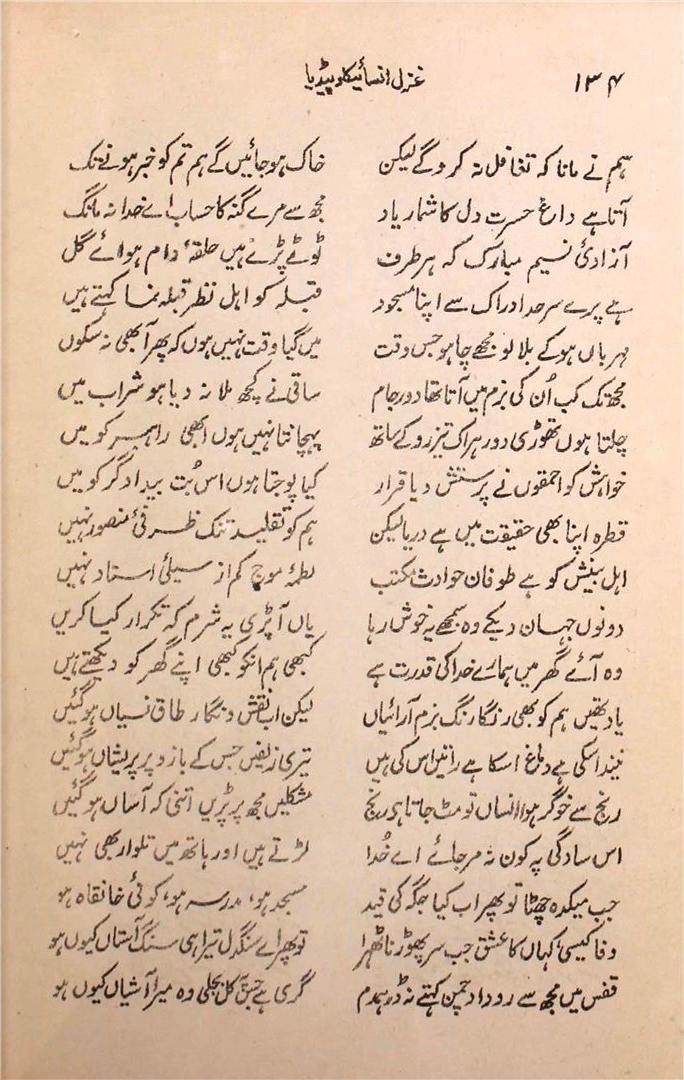 ۱۳۴ غزل انسائیکلوپیڈیا
ہم نے مانا کہ تغافل نہ کرو گے لیکن خاک ہو جائیں گے ہم تم کو خبر ہونے تک
آتا ہے داغِ حسرت دل کا شمار یاد مجھ سے مرے گنہ کا حساب اے خدا نہ مانگ
آزادیٔ نسیم مبارک کہ ہر طرف ٹوٹے پڑے ہیں حلقۂ دام ہوائے گل
ہے پرے سرحد ادراک سے اپنا مسجود قبلہ کو اہل نظر قبلہ نما کہتے ہیں
مہرباں ہو کے بلا لو مجھے چاہو جس وقت میں گیا وقت نہیں ہوں کہ پھر آ بھی نہ سکوں
مجھ تک کب اُن کی بزم میں آتا تھا دور جام ساقی نے کچھ ملا نہ دیا ہو شراب میں
چلتا ہوں تھوڑی دور ہر اک تیز رو کے ساتھ پہچانتا نہیں ہوں ابھی راہبر کو میں
خواہش کو احمقوں نے پرستش دیا قرار کیا پوجتا ہوں اس بُت بیداد گر کو میں
قطرہ اپنا بھی حقیقت میں ہے دریا لیکن ہم کو تقلید تنک ظرفیٔ منصور نہیں
اہل بینش کو ہے طوفان حوادث مکتب لطمۂ موج کم از سیلیٔ استاد نہیں
دونوں جہان دیکے وہ سمجھے یہ خوش رہا یاں آ پڑی یہ شرم کہ تکرار کیا کریں
وہ آئے گھر میں ہمارے خدا کی قدرت ہے کبھی ہم انکو کبھی اپنے گھر کو دیکھتے ہیں
یاد تھیں ہم کو بھی رنگا رنگ بزم آرائیاں لیکن اب نقش و نگار طاق نسیاں ہو گئیں
نیند اسکی ہے دماغ اسکا ہے راتیں اس کی ہیں تیری زلفیں جس کے بازو پر پریشاں ہو گئیں
رنج سے خوگر ہوا انساں تو مٹ جاتا ہے رنج مشکلیں مجھ پر پڑیں اتنی کہ آساں ہو گئیں
اس سادگی پہ کون نہ مر جائے اے خُدا لڑتے ہیں اور ہاتھ میں تلوار بھی نہیں
جب میکدہ چھٹا تو پھر اب کیا جگہ کی قید مسجد ہو، مدرسہ ہو، کوئی خانقاہ ہو
وفا کیسی، کہاں کا عشق جب سر پھوڑنا ٹھہرا تو پھر اے سنگدل تیرا ہی سنگ آستاں کیوں ہو
قفس میں مجھ سے روداد چمن کہتے نہ ڈر ہمدم گری ہے جس پہ کل بجلی وہ میرا آشیاں کیوں ہو